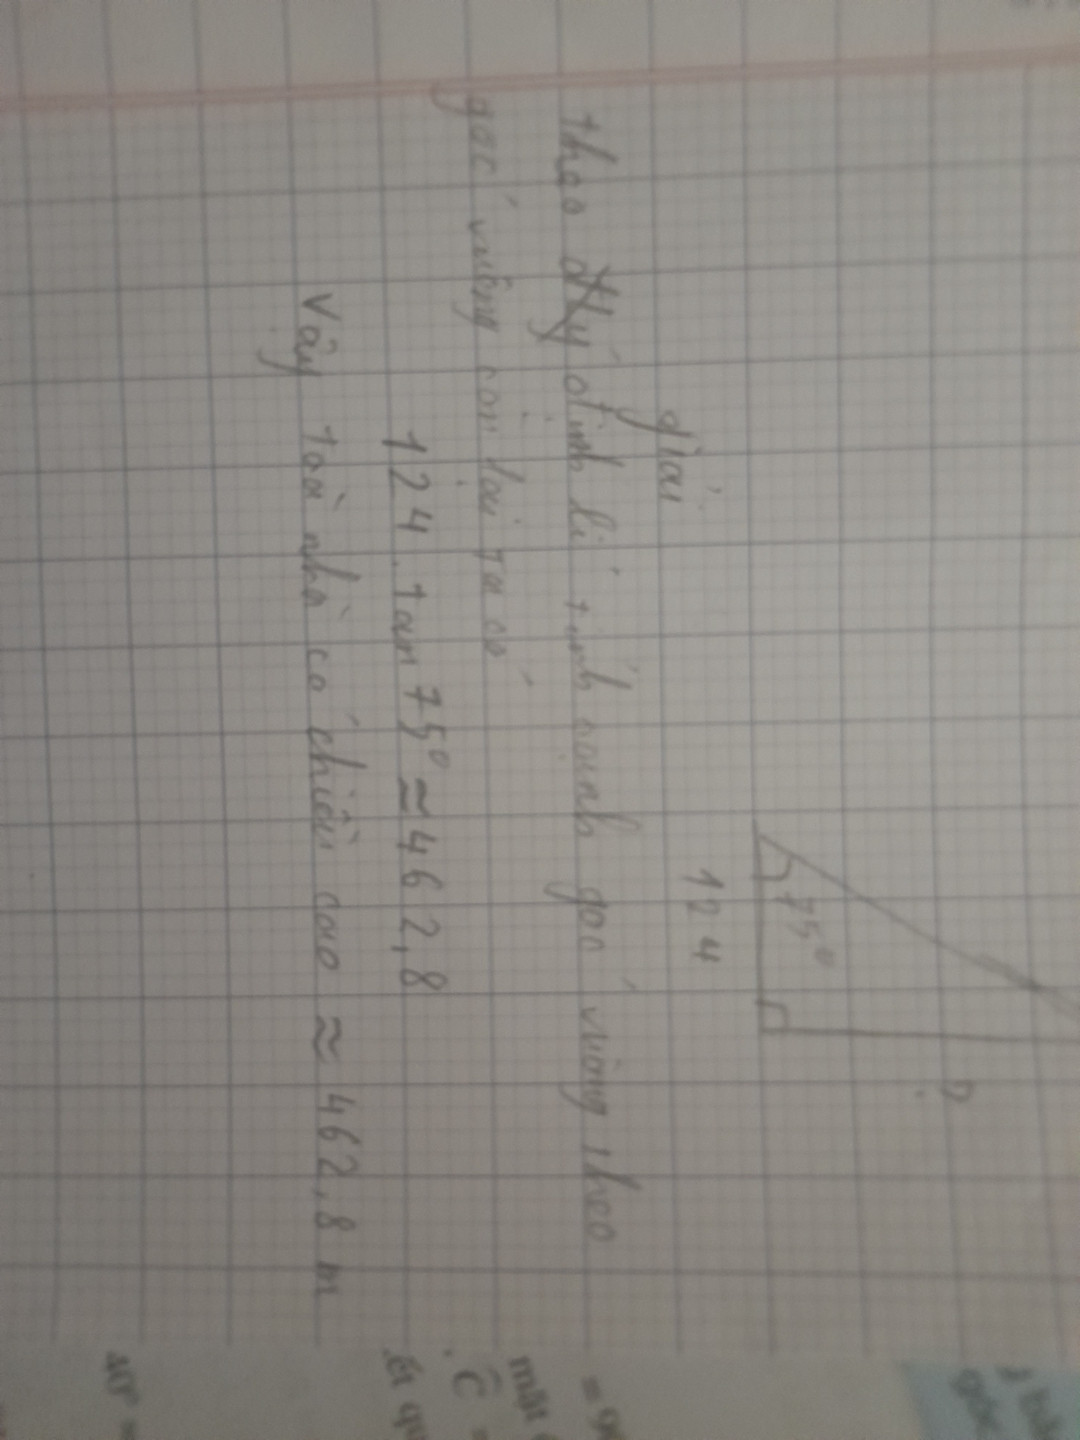 ?
75°
124
giải
theo định lí tính cạnh góc vuông theo
góc vuông còn lại ta có
124 . tan 75° ≈ 462,8
Vậy toà nhà có chiều cao ≈ 462,8 m